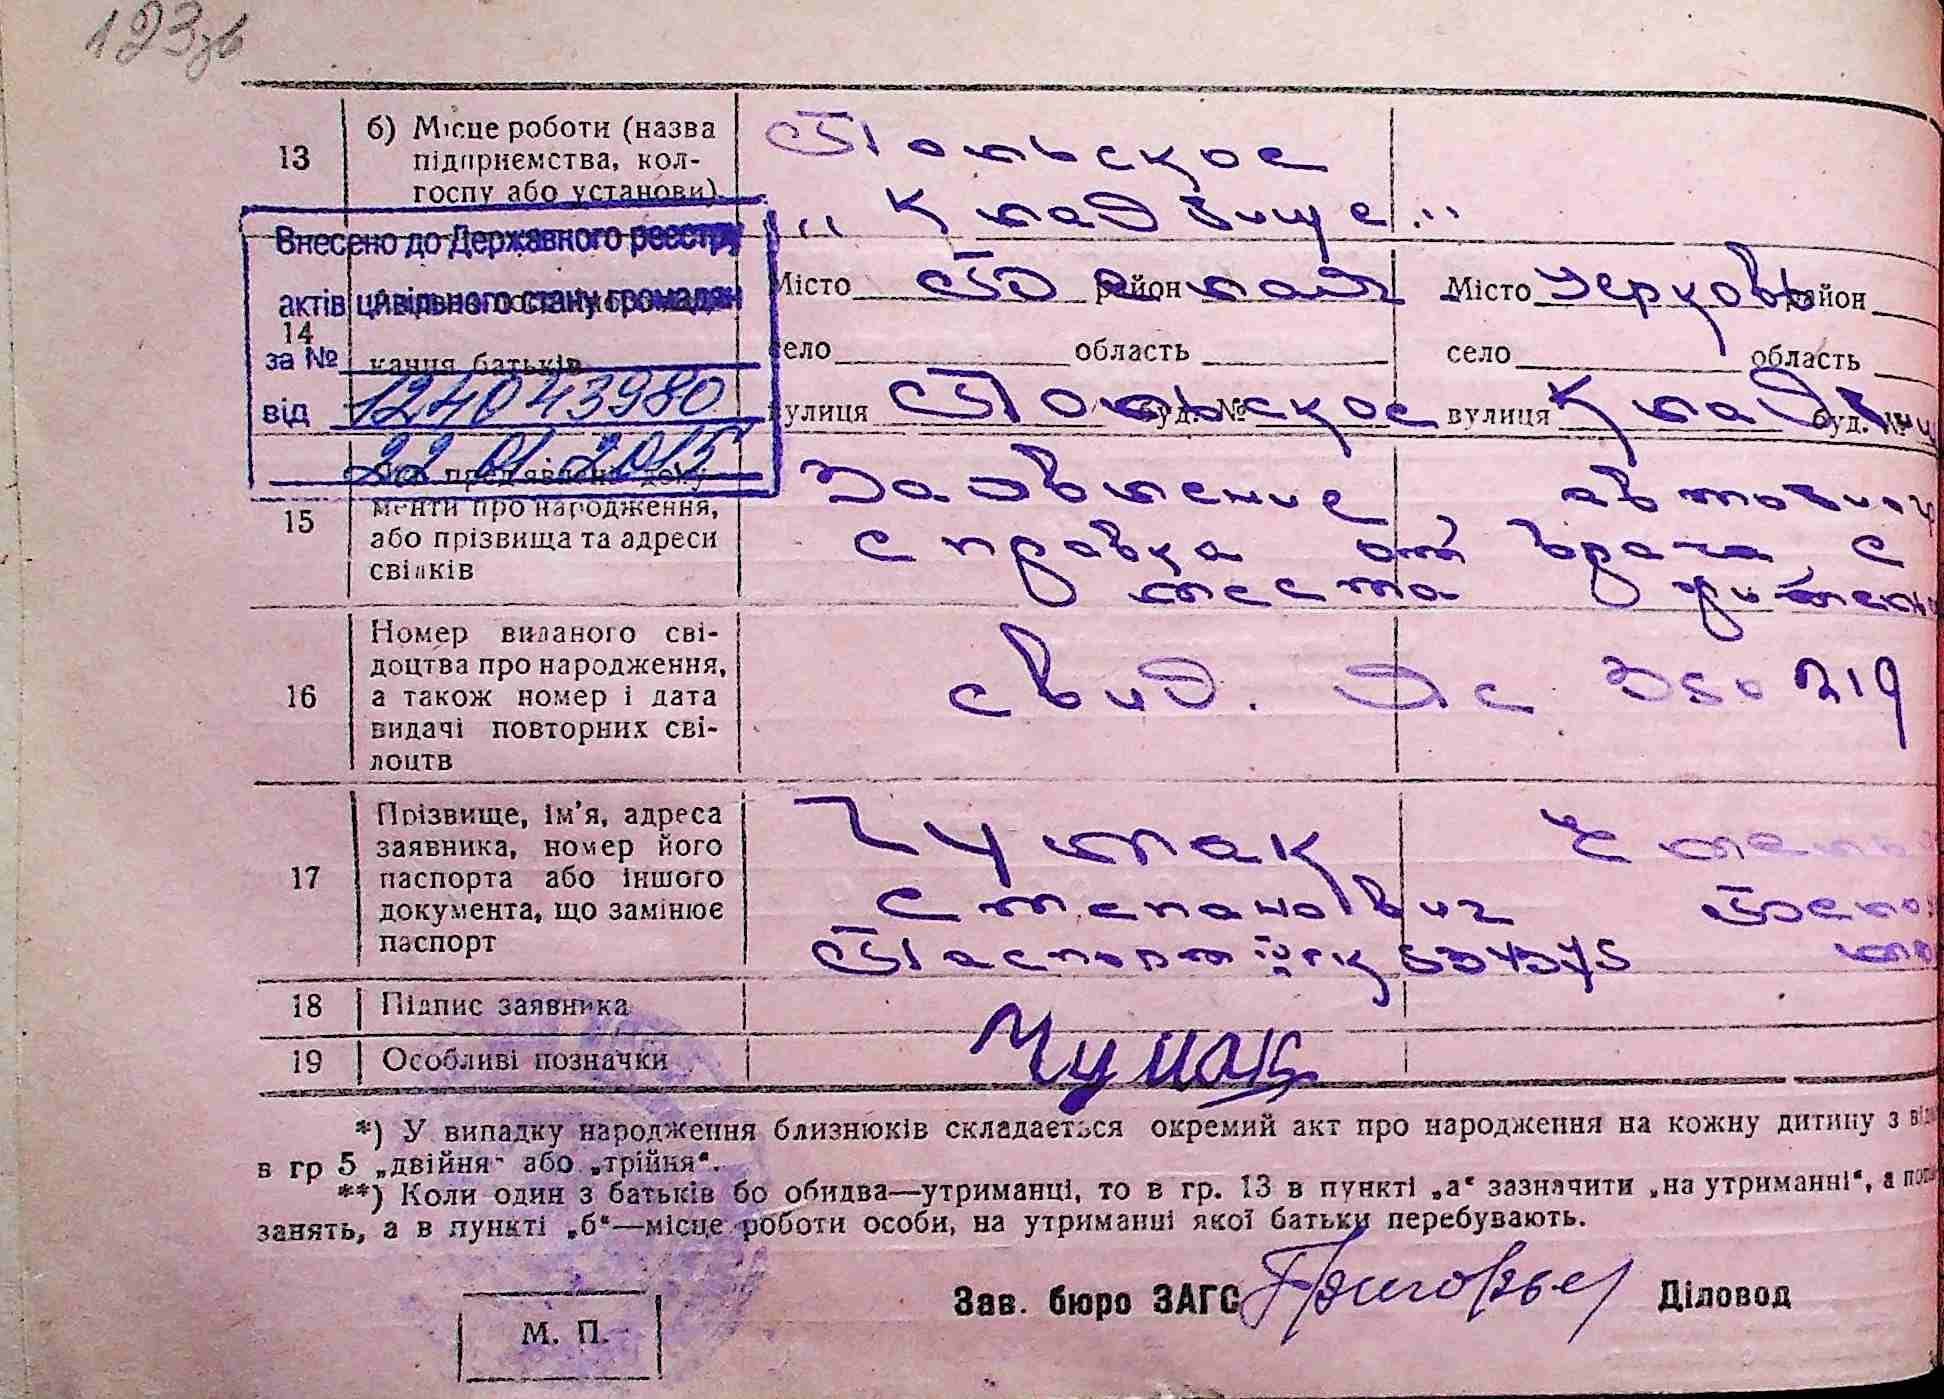 123зв
13
б) Місце роботи (назва
підприємства, кол-
госпу або установи)
Польское
„Кладвище"
Внесено до Державного реєстру
актів цивільного стану громадян
за №
124043980
від
22 01 2015
14
кання батьків
Місто район
село область
вулиця Польское буд. №
Місто Церковь район
село область
вулиця Кладвищ буд. №
15
Які пред'явлено доку
менти про народження,
або прізвища та адреси
свідків
Заявление,
справка от врача, с
места
16
Номер виданого сві-
доцтва про народження,
а також номер і дата
видачі повторних сві-
доцтв
свид.
17
Прізвище, ім'я, адреса
заявника, номер його
паспорта або іншого
документа, що замінює
паспорт
Чумак
Степанович
Паспорт
18
Підпис заявника
Чумак
19
Особливі позначки
*) У випадку народження близнюків складається окремий акт про народження на кожну дитину з
в гр 5 „двійня" або „трійня".
**) Коли один з батьків бо обидва—утриманці, то в гр. 13 в пункті „а" зазначити „на утриманні", а
занять, а в пункті „б"—місце роботи особи, на утриманні якої батьки перебувають.
Зав. бюро ЗАГС Діловод
М. П.